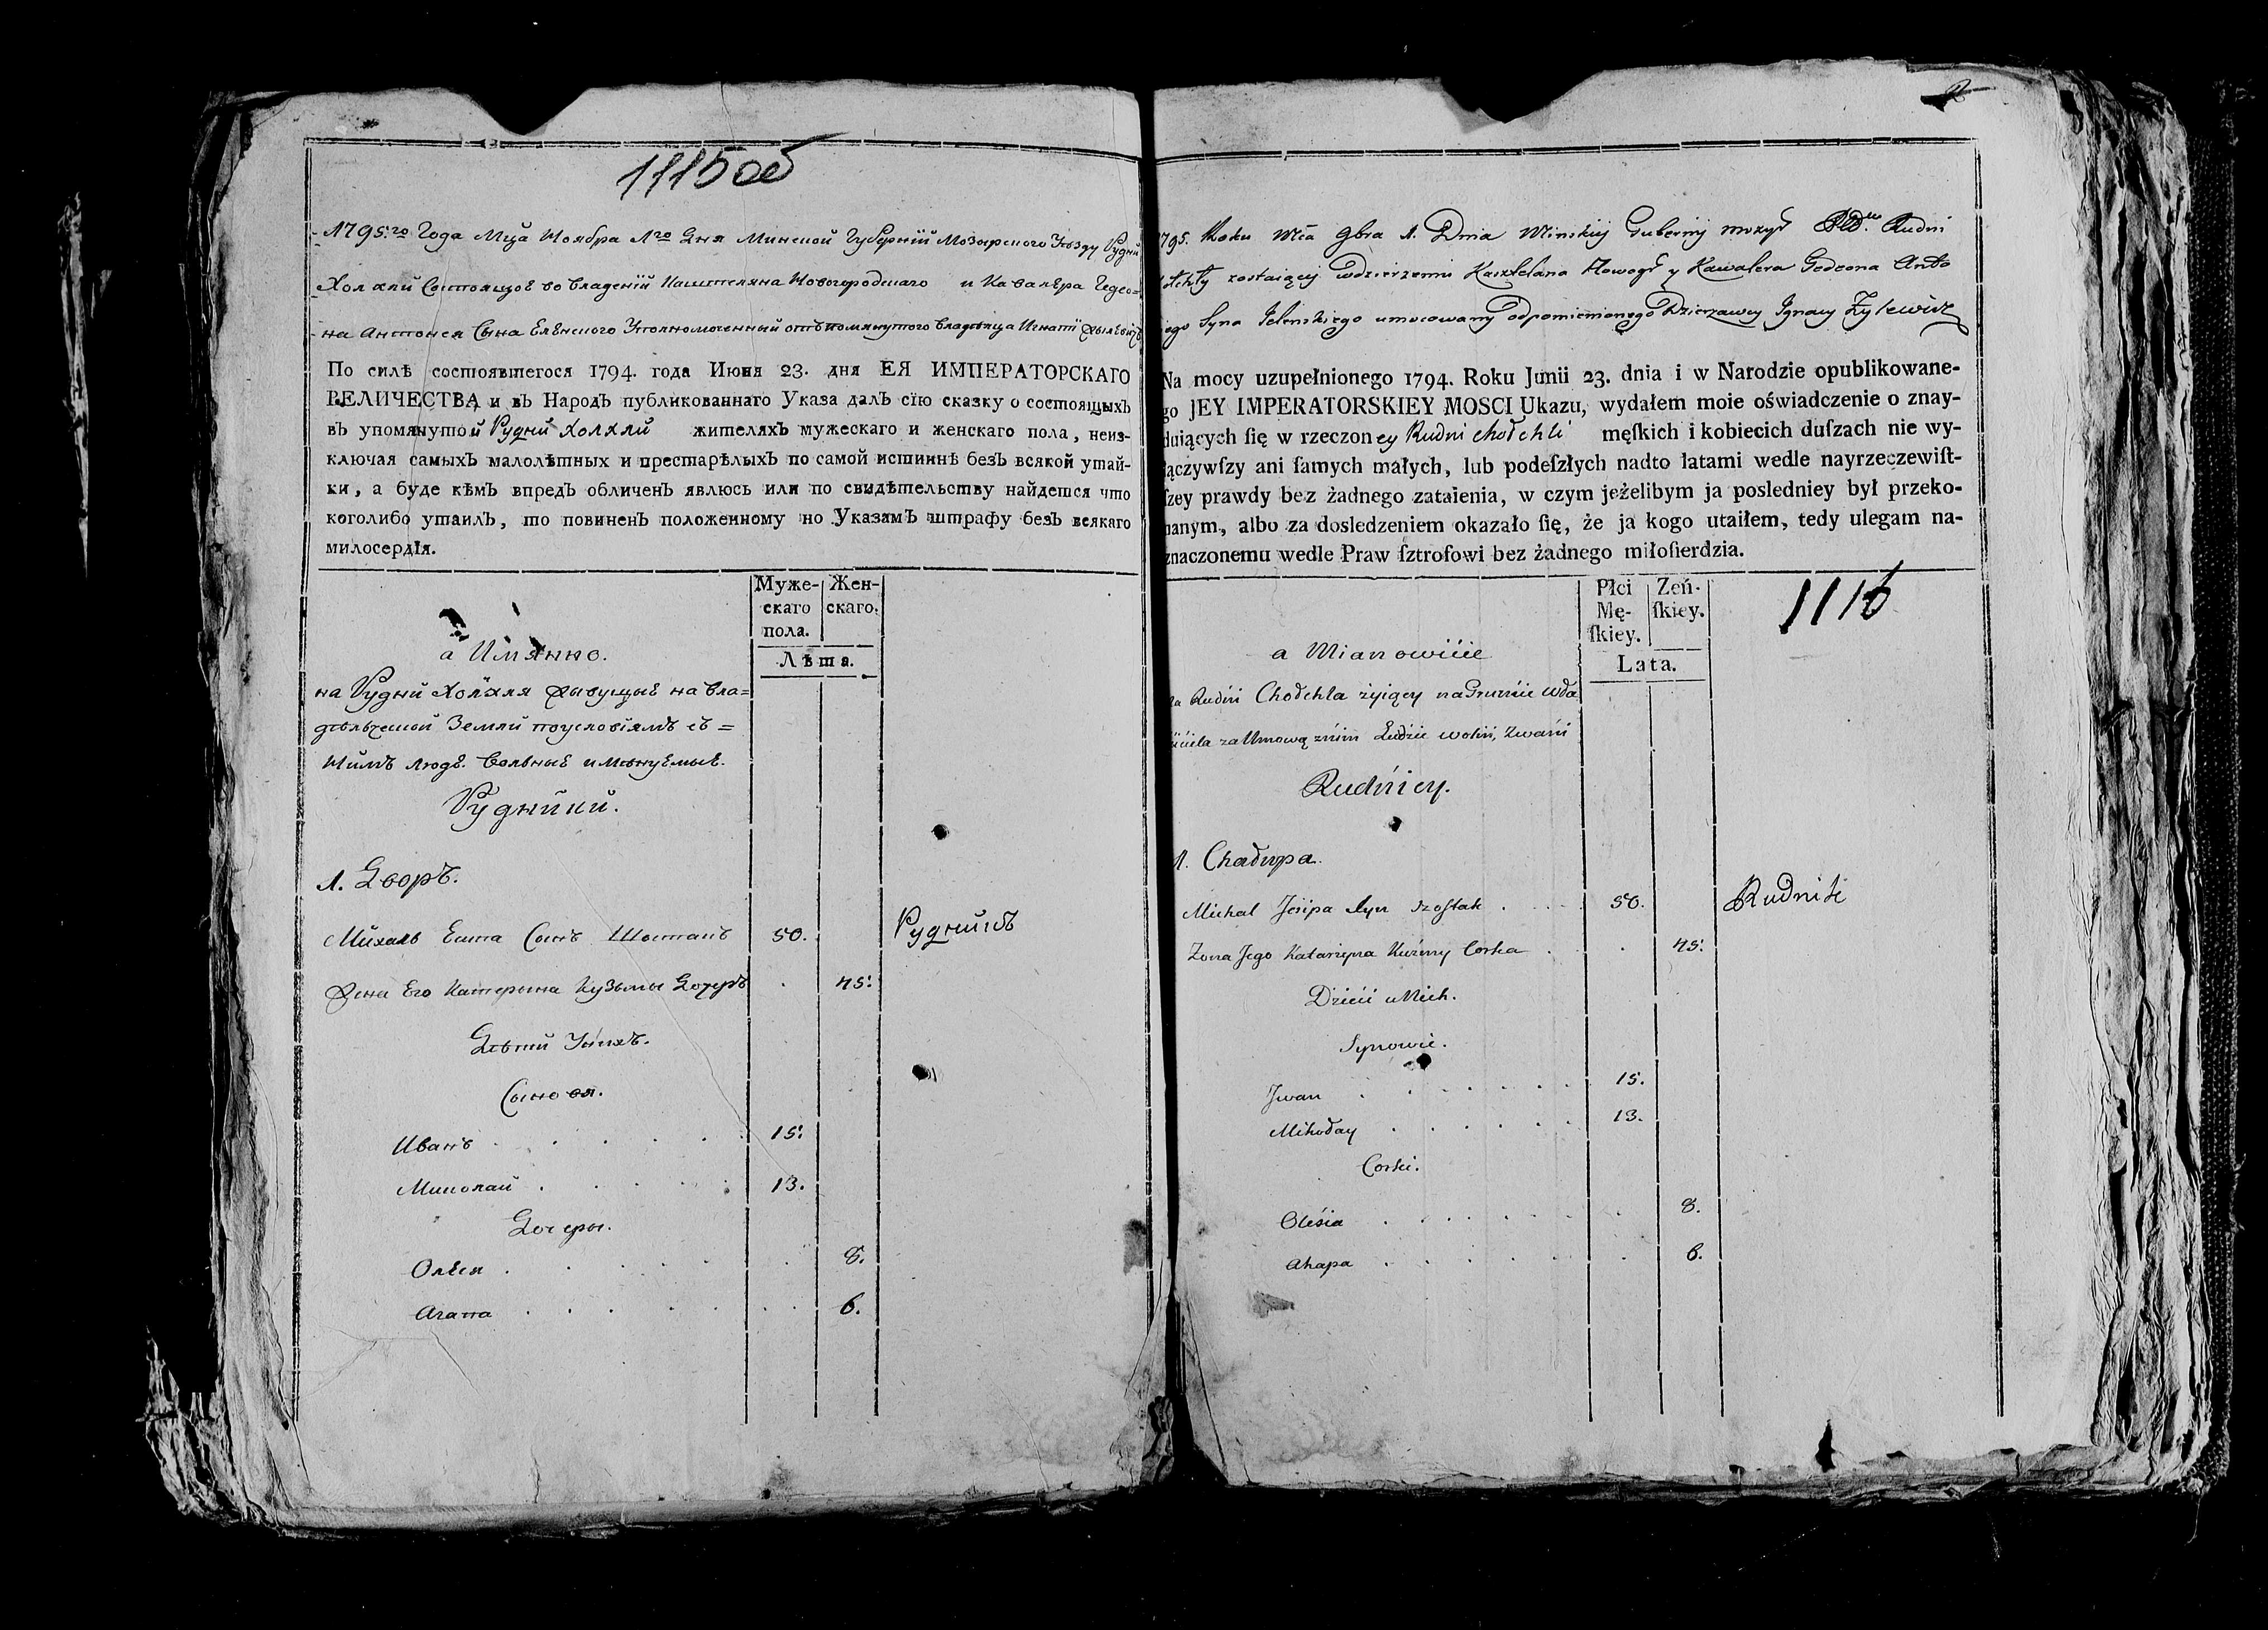 1115об
1795.го Года Мца Ноября 1го Дня Минской Губерній Мозырского Уезду Рудни
Холхли Состоящое во владеній Каштеляна Новогородского и Кавалера Гедео=
на Антонея Сына Еленского Уполномоченный отъ помянутого владелца Игнатій Жылевичъ
По силѣ состоявшегося 1794. года Июня 23. дня ЕЯ ИМПЕРАТОРСКАГО
ВЕЛИЧЕСТВА и въ Народъ публикованнаго Указа далъ сїю сказку о состоящыхъ
въ упомянутой Рудни Холхли жителяхъ мужескаго и женскаго пола, неиз-
ключая самыхъ малолѣтных и престарѣлыхъ по самой истиннѣ безъ всякой утай-
ки, а буде кѣмъ впредъ обличенъ явлюсь или по свидѣтельству найдется что
коголибо утаилъ, то повиненъ положенному по Указамъ штрафу безъ всякаго
милосердїя.
Муже-
скаго
пола.
Жен-
скаго.
Лѣта.
а Имянно.
на Рудни Холхля жывущые на вла=
дѣльческой Земли поусловіямъ съ=
Нимъ люде. вольные имѣнуемые.
Рудники.
1. Дворъ.
Михаль Есипа Сынъ Шостакъ 50. Рудникъ
Жена Его Катерына Кузьмы Дочеръ . 45.
Дѣти Уних.
Сыновя.
Иванъ . . . . . 15.
Миколай . . . . . 13.
Дочеры.
Олеся . . . . . . 8.
Агапа . . . . . . 6.
1795. Roku Mca 9bra 1. Dnia Minskiy Guberny Mozyr Rudni
Chołchły zostaiącey wdzierzeniu Kasztelana Nowogr y Kawalera Gedeona Anto
iego Syna Jelenskiego umocowany odpomienionego Dzierzawcy Ignacy Zylewicz
Na mocy uzupełnionego 1794. Roku Junii 23. dnia i w Narodzie opublikowane-
go JEY IMPERATORSKIEY MOSCI Ukazu, wydałem moie oświadczenie o znay-
duiących ſię w rzeczoney Rudni chołchli męſkich i kobiecich duſzach nie wy-
łączywſzy ani ſamych małych, lub podeſzłych nadto latami wedle nayrzeczewiſt-
ſzey prawdy bez żadnego zataienia, w czym jeżelibym ja posledniey był przeko-
nanym, albo za dosledzeniem okazało ſię, że ja kogo utaiłem, tedy ulegam na-
znaczonemu wedle Praw ſztrofowi bez żadnego miłoſierdzia.
Płci
Mę-
ſkiey.
Zeń-
ſkiey.
1116
Lata.
a Mianowićie
na Rudni Chołchla żyiący na Grunćie Wła
śćićiela za Umową z nim Ludzie wolni, Zwani
Rudnicy.
1. Chałupa.
Michal Jesipa Syn Szostak . . . . 50. Rudnik
Zona Jego Katarzyna Kuźmy Corka . . 45.
Dzieći u Nich.
Synowie.
Jwan . . . . . . 15.
Mikołay . . . . . 13.
Corki.
Oleśia . . . . . . 8.
Ahapa . . . . . . 6.